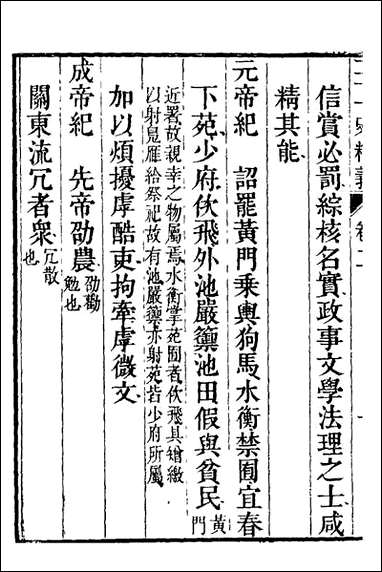 信賞必罰綜核名實政事文學法理之士咸
精其能
元帝紀　詔罷黃門乘輿狗馬水衡禁囿宜春
下苑少府佽飛外池嚴籞池田假與貧民黃門
近署故親幸之物屬焉水衡掌苑囿者佽飛具矰繳
以射鳧雁給祭祀故有池嚴籞亦射苑若少府所屬
加以煩擾虖酷吏拘牽虖微文
成帝紀　先帝劭農劭勸勉也
關東流冗者衆冗散也